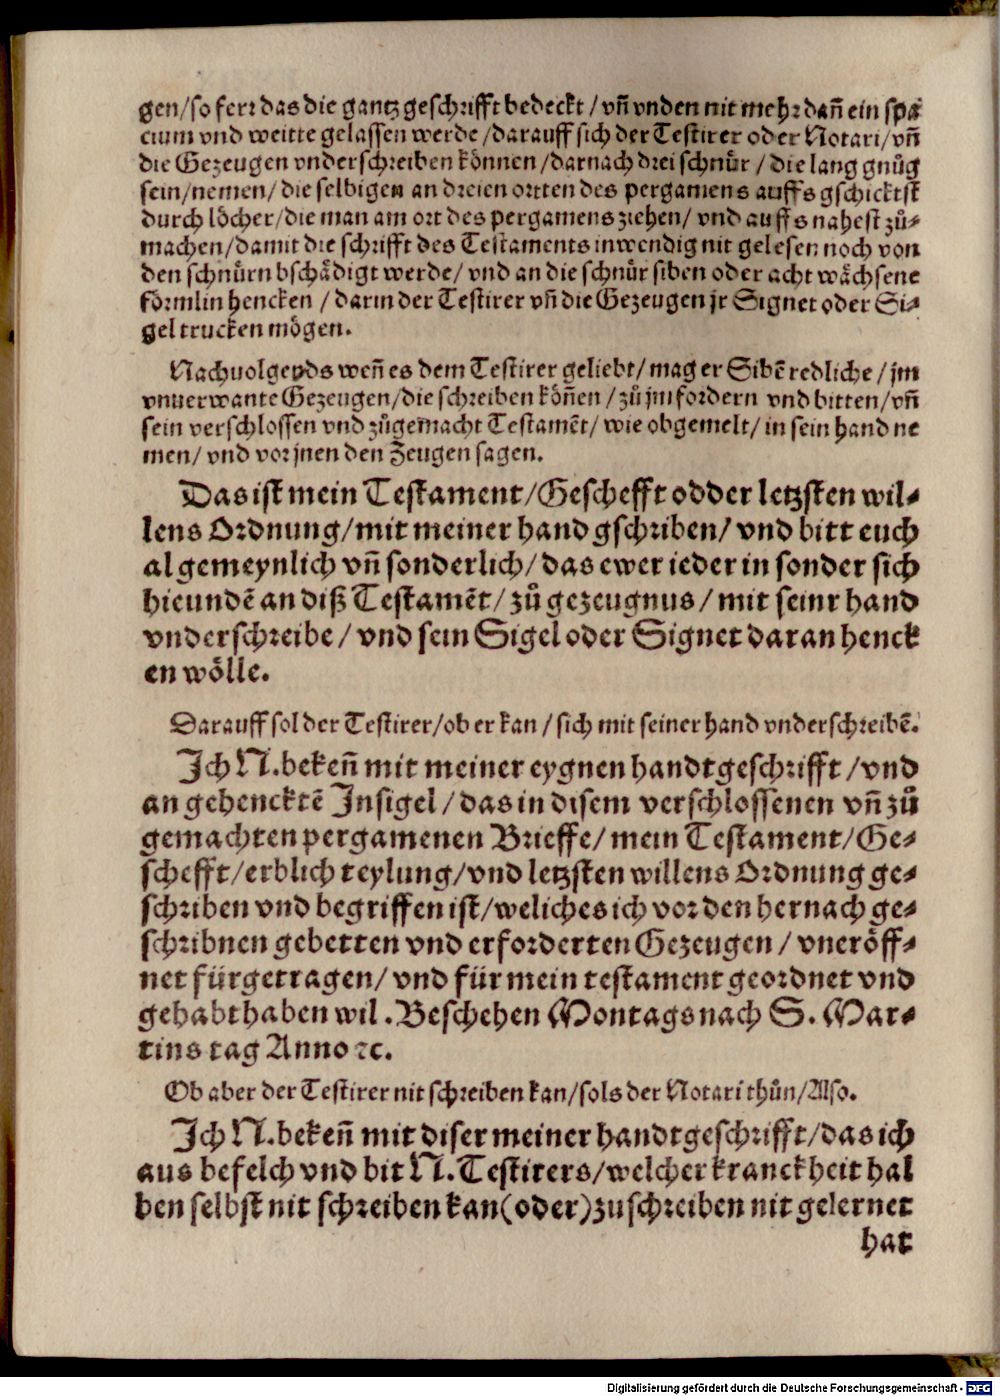 gen/so ferr das die gantz geschrifft bedeckt/vñ vnden nit mehr dañ ein spa
cium vnd weitte gelassen werde/darauff sich der Testirer oder Notari/vñ
die Gezeugen vnderschreiben können/darnach drei schnür/die lang gnůg
sein/nemen/die selbigen an dreien ortten des pergamens auffs gschicktst
durch löcher/die man am ort des pergamens ziehen/vnd auffs nahest zů⸗
machen/damit die schrifft des Testaments inwendig nit gelesen noch von
den schnürn bschädigt werde/vnd an die schnür siben oder acht wächsene
förmlin hencken/darin der Testirer vñ die Gezeugen jr Signet oder Si⸗
gel trucken mögen.
Nachuolgends weñ es dem Testirer geliebt/mag er Sibē redliche/jm
vnuerwante Gezeugen/die schreiben köñen/zů jm fordern vnd bitten/vñ
sein verschlossen vnd zůgemacht Testamēt/wie obgemelt/in sein hand ne
men/vnd vor jnen den Zeugen sagen.
Das ist mein Testament/Geschefft odder letzsten wil⸗
lens Ordnung/mit meiner hand gschriben/vnd bitt euch
al gemeynlich vñ sonderlich/das ewer ieder in sonder sich
hieundē an diß Testamēt/zů gezeugnus/mit seinr hand
vnderschreibe/vnd sein Sigel oder Signet daran henck
en wölle.
Darauff sol der Testirer/ob er kan/sich mit seiner hand vnderschreibē.
Ich N. bekeñ mit meiner eygnen handtgeschrifft/vnd
an gehencktē Insigel/das in disem verschlossenen vñ zů
gemachten pergamenen Brieffe/mein Testament/Ge⸗
schefft/erblich teylung/vnd letzsten willens Ordnung ge⸗
schriben vnd begriffen ist/weliches ich vor den hernach ge⸗
schribnen gebetten vnd erforderten Gezeugen/vneröff⸗
net fürgetragen/vnd für mein testament geordnet vnd
gehabt haben wil. Beschehen Montags nach S. Mar⸗
tins tag Anno ꝛc.
Ob aber der Testirer nit schreiben kan/sols der Notari thůn/Also.
Ich N. bekeñ mit diser meiner handtgeschrifft/das ich
aus befelch vnd bit N. Testirers/welcher kranckheit hal
ben selbst nit schreiben kan(oder)zuschreiben nit gelernet
hat
Digitalisierung gefördert durch die Deutsche Forschungsgemeinschaft - DFG